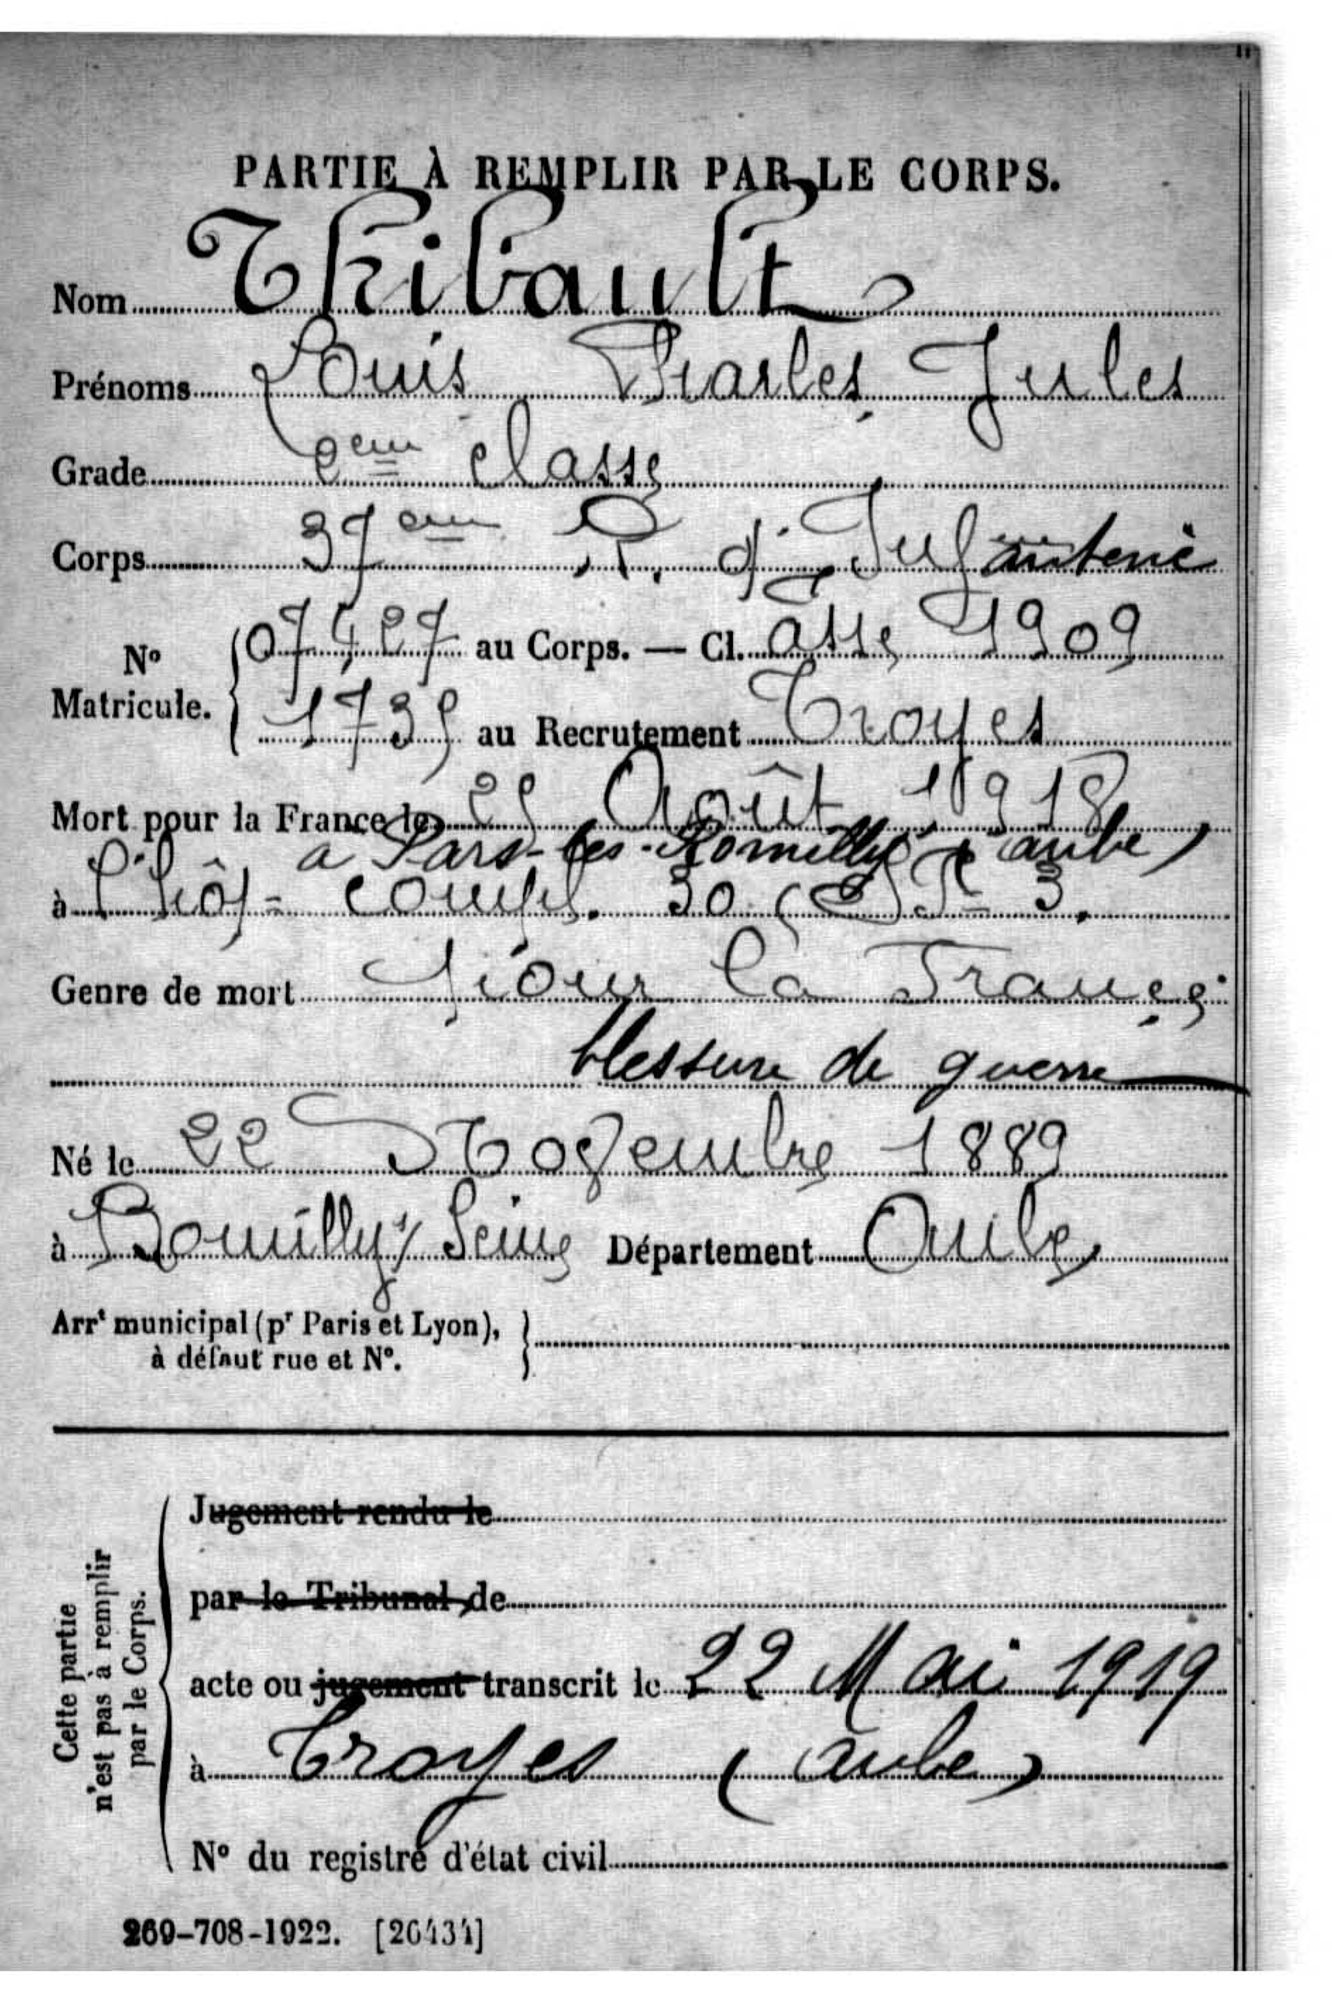 PARTIE À REMPLIR PAR LE CORPS.
Nom Thibault
Prénoms Louis Charles Jules
Grade 2eme classe
Corps 37eme R. d'Infanterie
N° Matricule. 07427 au Corps. — Cl. asse 1909
1735 au Recrutement Troyes
Mort pour la France le 25 Août 1918
a Pars-les-Romilly (aube)
à l'hôp= compl. 30 SP 3.
Genre de mort pour la France
blessure de guerre
Né le 22 Novembre 1889
à Romilly s/ Seine Département Aube
Arrt municipal (pr Paris et Lyon),
à défaut rue et N°.
Cette partie
n'est pas à remplir
par le Corps.
Jugement rendu le
par le Tribunal de
acte ou jugement transcrit le 22 Mai 1919
à Troyes (aube)
N° du registre d'état civil
269-708-1922. [26434]